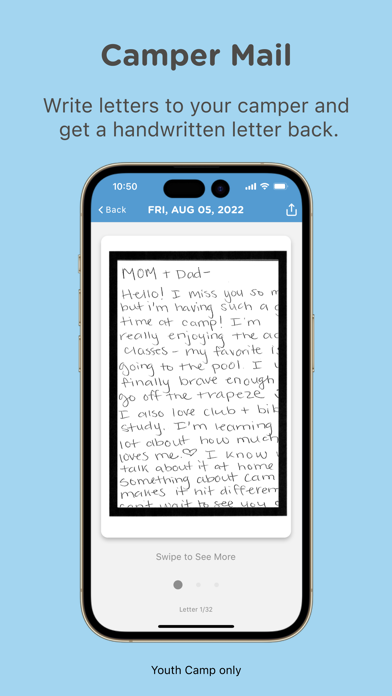 Camper Mail
Write letters to your camper and
get a handwritten letter back.
10:50
Back
FRI, AUG 05, 2022
MOM + Dad-
Hello! I miss you so m
but i'm having such a g
time at camp! I'm
really enjoying the ac
classes - my favorite is
going to the pool. I w
finally brave enough
go off the trapeze
I also love club + bib
study. I'm learning
lot about how much
loves me.♡ I know
talk about it at home
something about cam
makes it hit differen
cant wait to see you
Swipe to See More
Letter 1/32
Youth Camp only